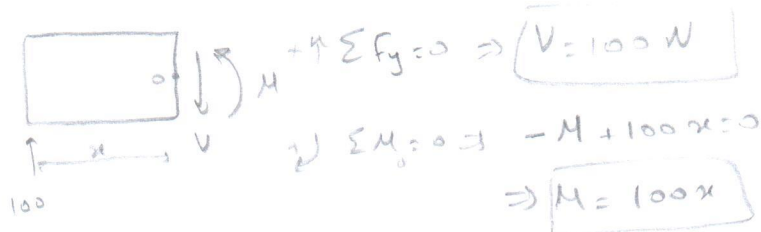 +↑ ΣFy=0 ⇒ V=100 N
O
M
x
V
↻ ΣMo=0 ⇒ -M+100x=0
100
⇒ M=100x